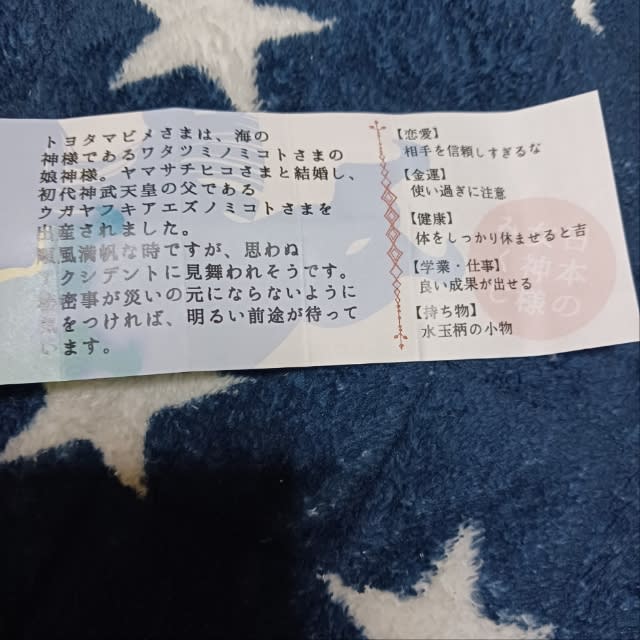 トヨタマビメさまは、海の
神様であるワタツミノミコトさまの
娘神様。ヤマサチヒコさまと結婚し、
初代神武天皇の父である
ウガヤフキアエズノミコトさまを
出産されました。
順風満帆な時ですが、思わぬ
クシデントに見舞われそうです。
密事が災いの元にならないように
気をつければ、明るい前途が待って
います。
【恋愛】
相手を信頼しすぎるな
【金運】
使い過ぎに注意
【健康】
体をしっかり休ませると吉
【学業・仕事】
良い成果が出せる
【持ち物】
水玉柄の小物
日本の
神様